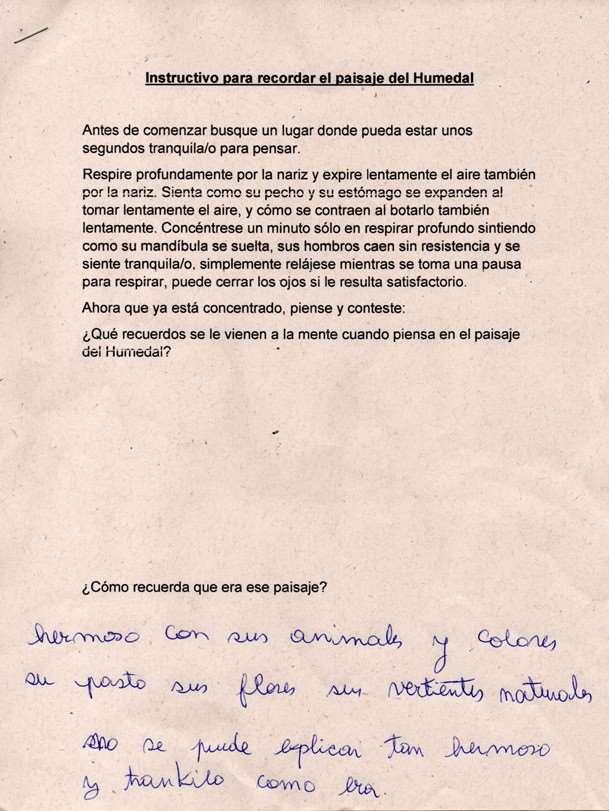 Instructivo para recordar el paisaje del Humedal
Antes de comenzar busque un lugar donde pueda estar unos
segundos tranquila/o para pensar.
Respire profundamente por la nariz y expire lentamente el aire también
por la nariz. Sienta como su pecho y su estómago se expanden al
tomar lentamente el aire, y cómo se contraen al botarlo también
lentamente. Concéntrese un minuto sólo en respirar profundo sintiendo
como su mandíbula se suelta, sus hombros caen sin resistencia y se
siente tranquila/o, simplemente relájese mientras se toma una pausa
para respirar, puede cerrar los ojos si le resulta satisfactorio.
Ahora que ya está concentrado, piense y conteste:
¿Qué recuerdos se le vienen a la mente cuando piensa en el paisaje
del Humedal?
¿Cómo recuerda que era ese paisaje?
hermoso con sus animales y colores
su pasto sus flores sus vertientes naturales
no se puede explicar tan hermoso
y trankilo como era.